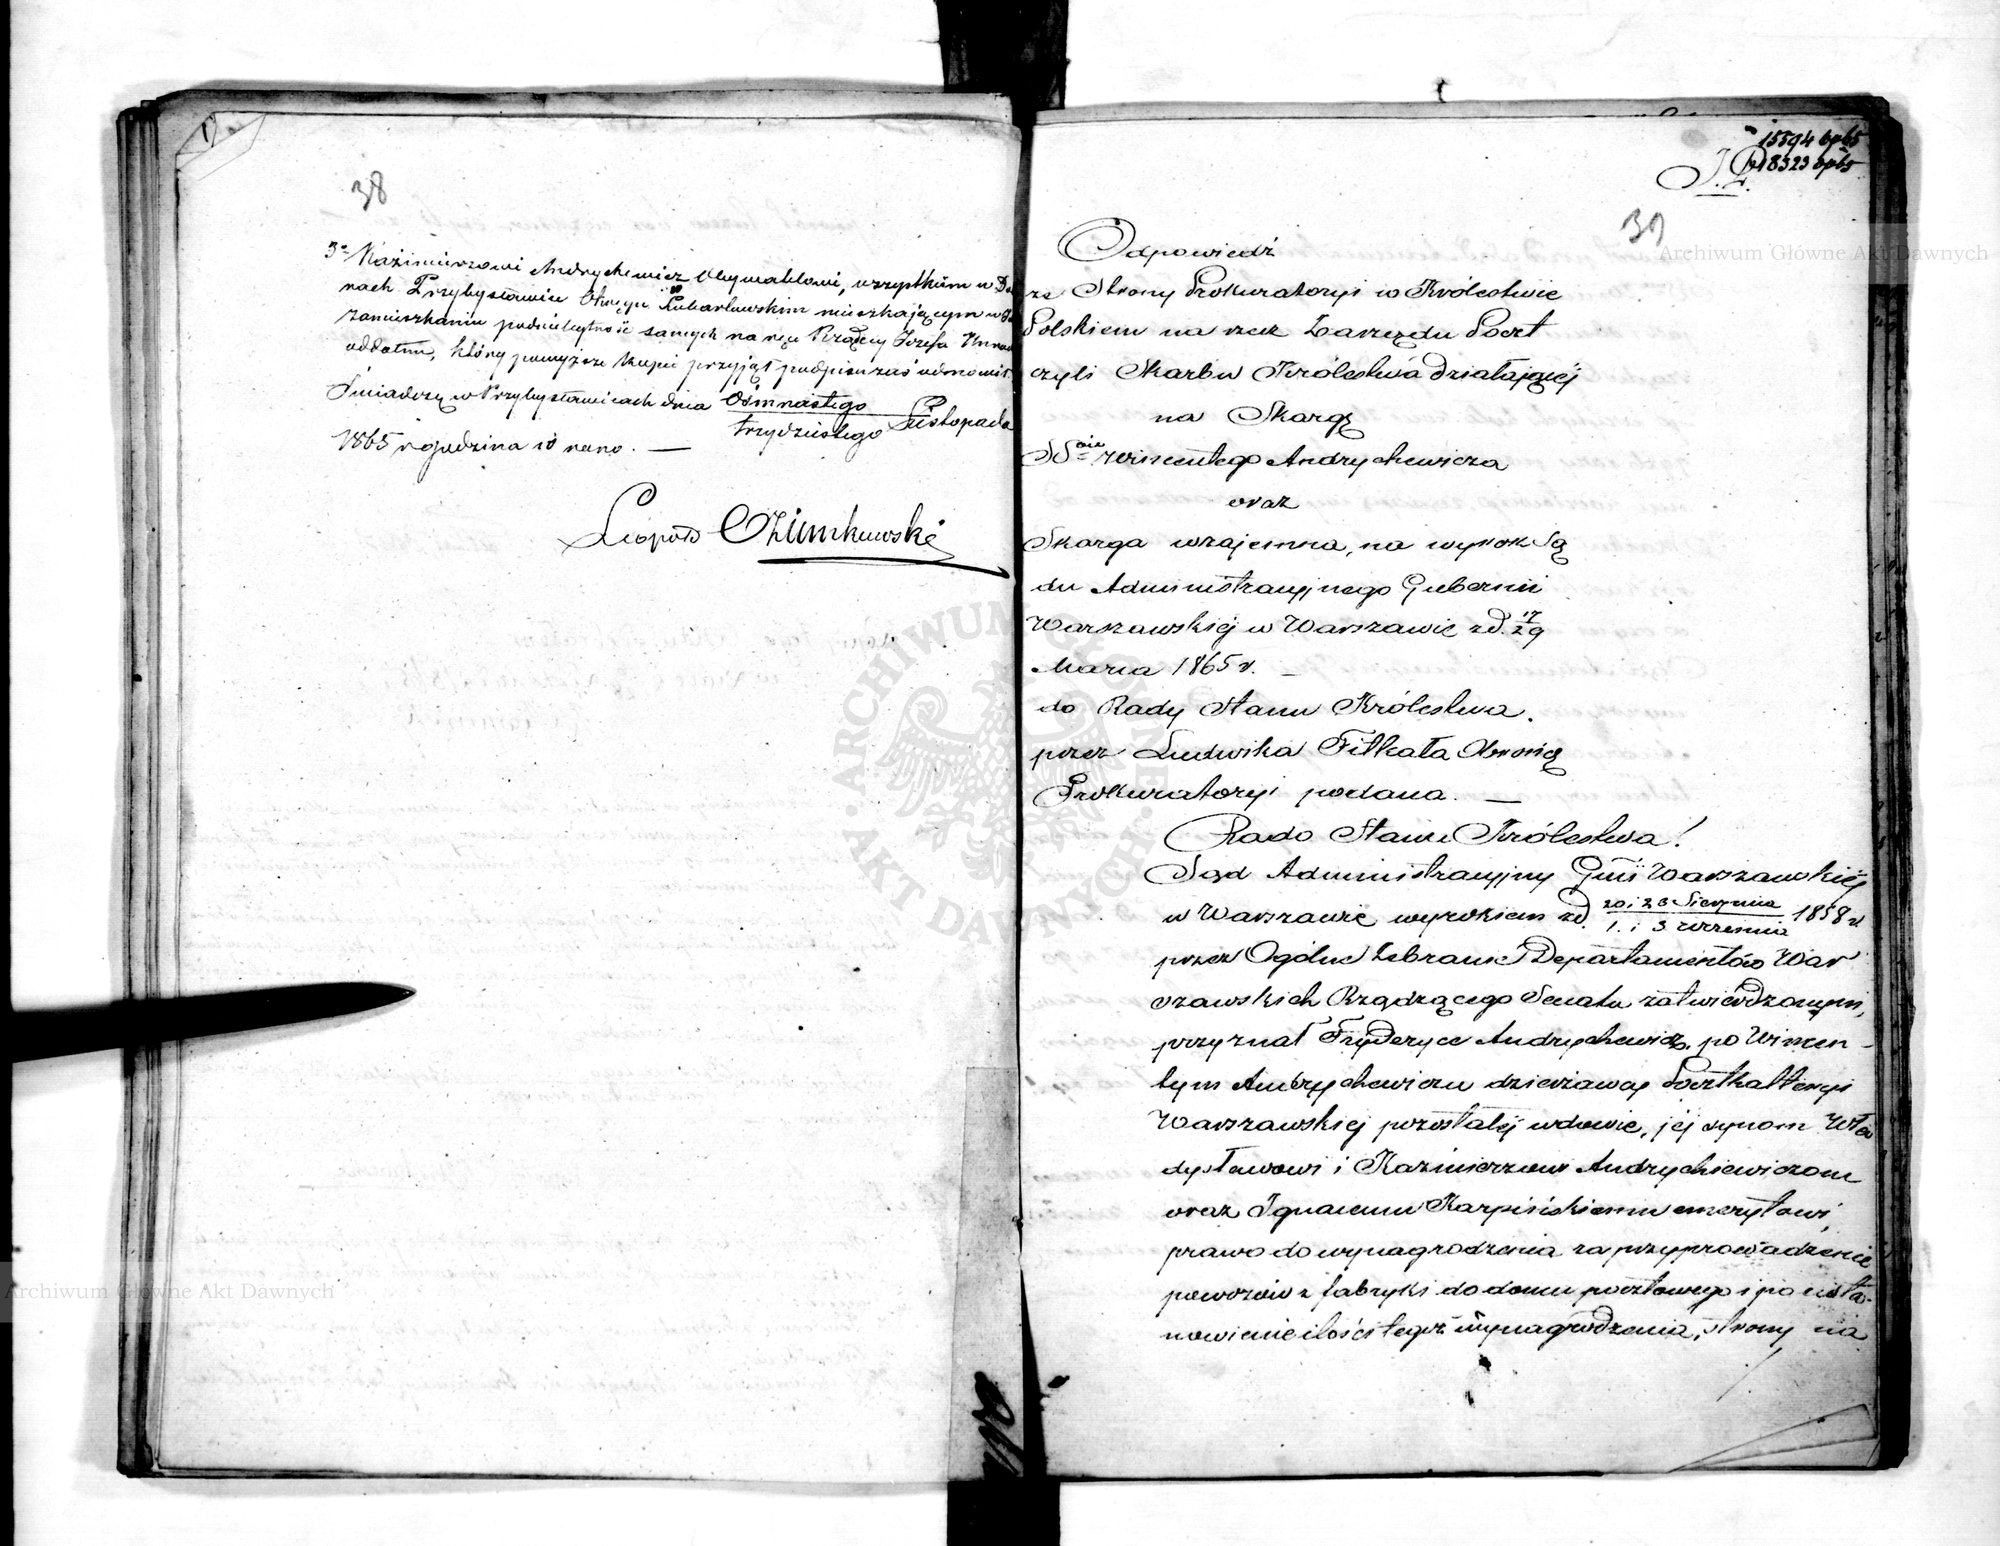 38
3º Kazimierzowi Andrychewicz Obywatelowi, wszystkim w Do
nach Przybysławiu Okręgu Lubartowskim mieszkającym w
zamieszkaniu podsielytność samych na ręce Rządcy Józefa
oddałem, który powyższe kopie przyjął podpisu zaś odmówił.
Świadczę w Przybysławicach dnia Ósmnastego Listopada
trzydziestego
1865 r godzina 10 rano. —
Leopold
15594
18323
39
Odpowiedź
ze Strony Prokuratoryi w Królestwie
Polskiem na rzecz Zarządu Poczt
czyli Skarbu Królestwa działającej
na Skargę
SSów Wincentego Andrychewicza
oraz
Skarga wzajemna, na wyrok Są
du Administracyjnego Gubernii
Warszawskiej w Warszawie z d. 17/29
Marca 1865 r. —
do Rady Stanu Królestwa.
przez Ludwika Filkała Obrońcę
Prokuratoryi podana. —
Rado Stanu Królestwa!
Sąd Administracyjny Gnii Warszawskiej
w Warszawie wyrokiem z d. 20 i 23 Sierpnia / 1. i 3 Września 1858 r.
przez Ogólne Zebranie Departamentów War
szawskich Rządzącego Senatu zatwierdzonym,
przyznał Fryderyce Andrychewicz, po Wincen-
tym Andrychewiczu dzierżawcy Poczthalteryi
Warszawskiej pozostałej wdowie, jej synom Wła
dysławowi i Kazimierzowi Andrychiewiczom
oraz Ignacemu Karpińskiemu emerytowi,
prawo do wynagrodzenia za przyprowadzenie
powozów z fabryki do domu pocztowego i po usta-
nowienie ilości tegoż wynagrodzenia, strony na
Archiwum Główne Akt Dawnych
Archiwum Główne Akt Dawnych
ARCHIWUM GŁÓWNE AKT DAWNYCH